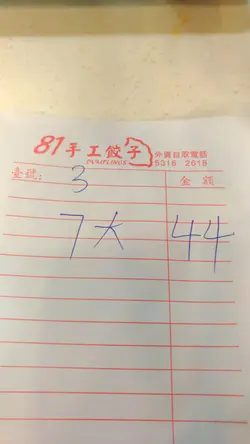 81手工餃子
DUMPLINGS
外賣自取電話
5316 2618
臺號: 3
金額
7大 44